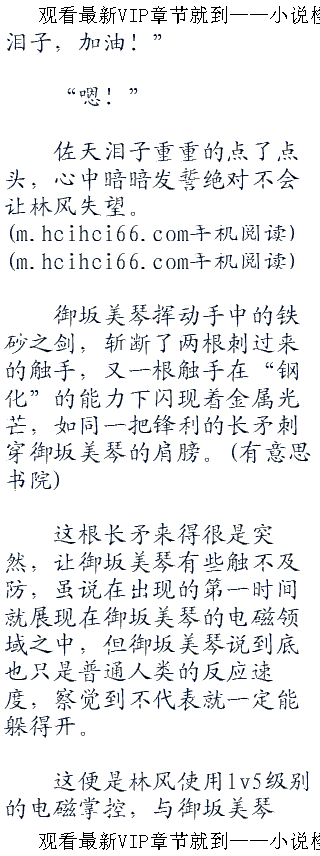 观看最新VIP章节就到——小说
泪子，加油！”
“嗯！”
佐天泪子重重的点了点
头，心中暗暗发誓绝对不会
让林风失望。
(m.hcihci66.com手机阅读)
(m.hcihci66.com手机阅读)
御坂美琴挥动手中的铁
砂之剑，斩断了两根刺过来
的触手，又一根触手在“钢
化”的能力下闪现着金属光
芒，如同一把锋利的长矛刺
穿御坂美琴的肩膀。(有意思
书院)
这根长矛来得很是突
然，让御坂美琴有些触不及
防，虽说在出现的第一时间
就展现在御坂美琴的电磁领
域之中，但御坂美琴说到底
也只是普通人类的反应速
度，察觉到不代表就一定能
躲得开。
这便是林风使用lv5级别
的电磁掌控，与御坂美琴
观看最新VIP章节就到——小说